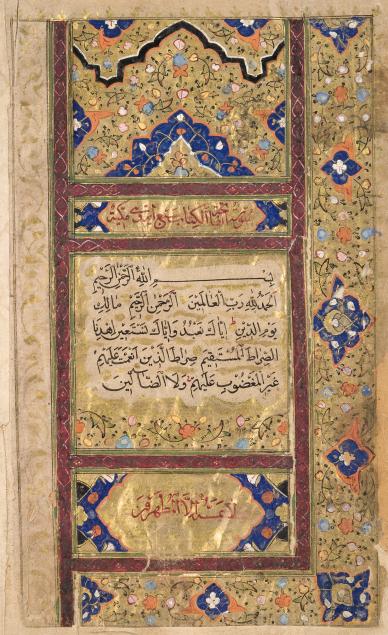 سورة فاتحة الكتاب سبع آيات مكية
بسم الله الرحمن الرحيم
الحمد لله رب العالمين الرحمن الرحيم مالك
يوم الدين إياك نعبد وإياك نستعين اهدنا
الصراط المستقيم صراط الذين أنعمت عليهم
غير المغضوب عليهم ولا الضالين
لا يمسه إلا المطهرون